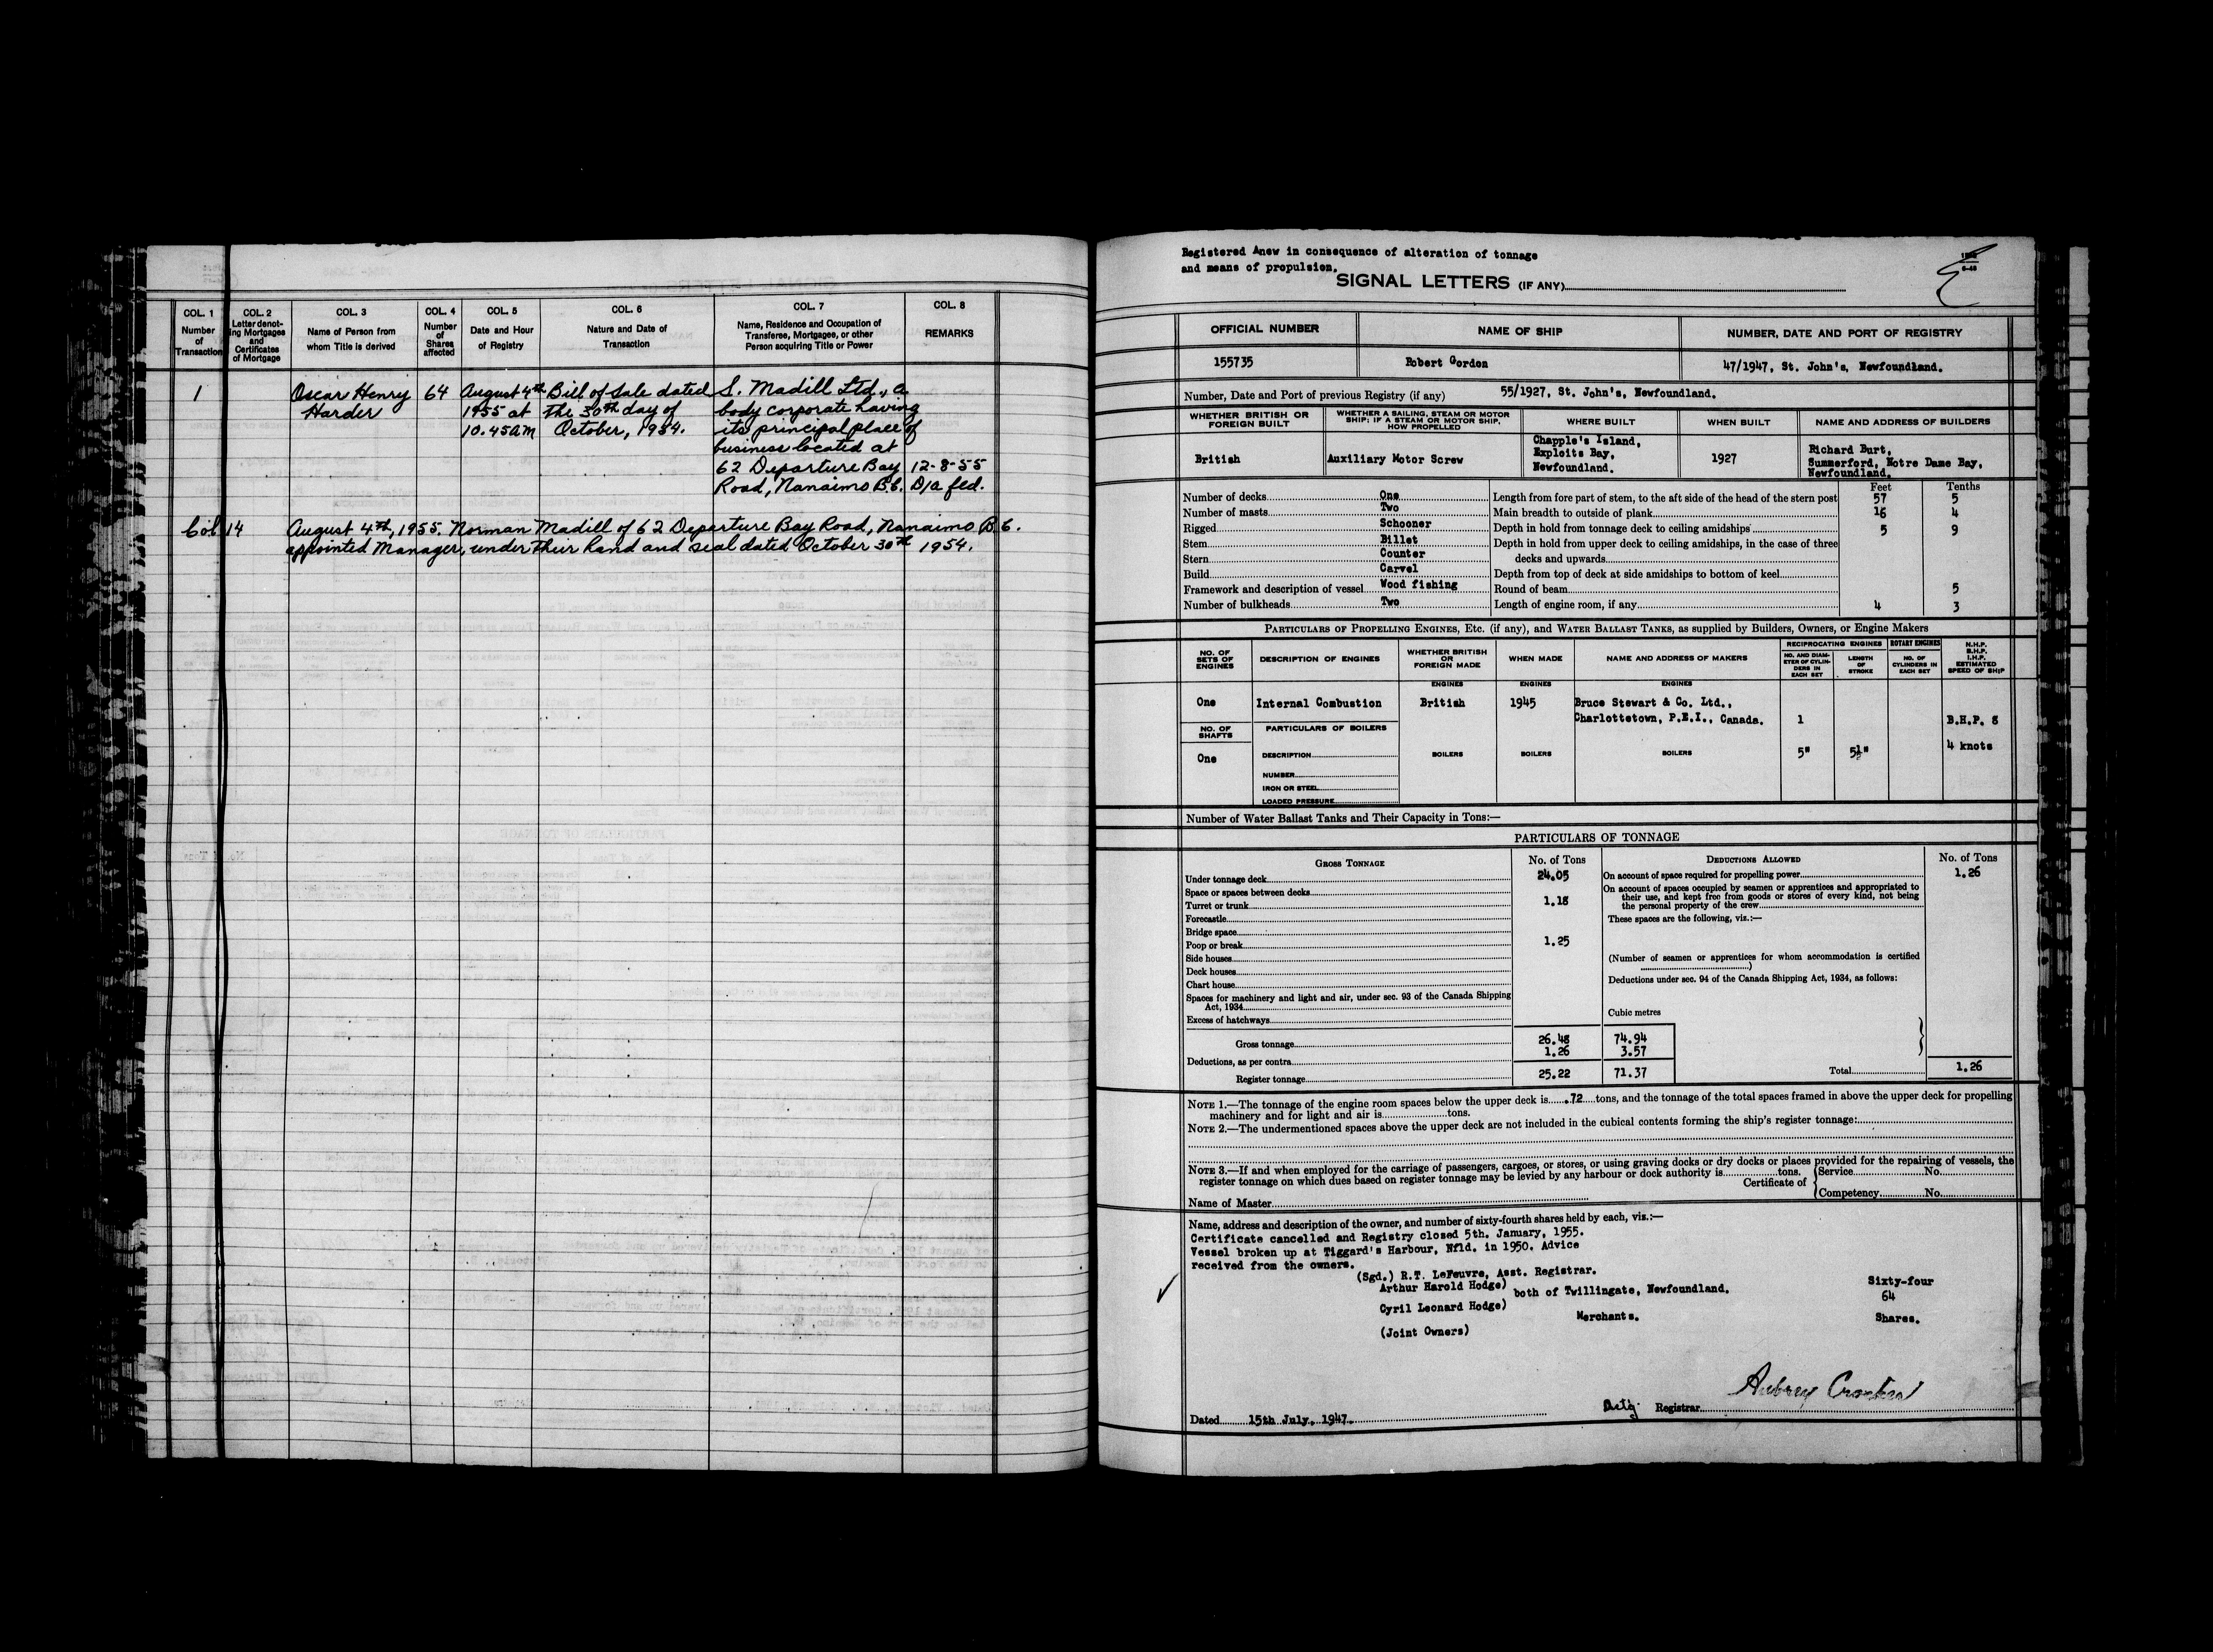 COL. 1 COL. 2 COL. 3 COL. 4 COL. 5 COL. 6 COL. 7 COL. 8
Number of Transaction
Letter denoting Mortgages and Certificates of Mortgage
Name of Person from whom Title is derived
Number of Shares affected
Date and Hour of Registry
Nature and Date of Transaction
Name, Residence and Occupation of Transferee, Mortgagee, or other Person acquiring Title or Power
REMARKS
1 Oscar Henry 64 August 4th Bill of Sale dated S. Madill Ltd., a
Harder 1955 at the 30th day of body corporate having
10.45 am October, 1954. its principal place of
business located at
62 Departure Bay 12-8-55
Road, Nanaimo B.C. D/a fed.
Col 14 August 4th, 1955. Norman Madill of 62 Departure Bay Road, Nanaimo B.C.
appointed Manager, under their hand and seal dated October 30th 1954.
Registered Anew in consequence of alteration of tonnage
and means of propulsion.
SIGNAL LETTERS (IF ANY)
OFFICIAL NUMBER NAME OF SHIP NUMBER, DATE AND PORT OF REGISTRY
155735 Robert Gordon 47/1947, St. John's, Newfoundland.
Number, Date and Port of previous Registry (if any) 55/1927, St. John's, Newfoundland.
WHETHER BRITISH OR FOREIGN BUILT
WHETHER A SAILING, STEAM OR MOTOR SHIP; IF A STEAM OR MOTOR SHIP, HOW PROPELLED
WHERE BUILT
WHEN BUILT
NAME AND ADDRESS OF BUILDERS
British
Auxiliary Motor Screw
Chapple's Island,
Exploits Bay,
Newfoundland.
1927
Richard Burt,
Summerford, Notre Dame Bay,
Newfoundland.
Feet Tenths
Number of decks One Length from fore part of stem, to the aft side of the head of the stern post 57 5
Number of masts Two Main breadth to outside of plank 16 4
Rigged Schooner Depth in hold from tonnage deck to ceiling amidships 5 9
Stem Billet Depth in hold from upper deck to ceiling amidships, in the case of three
Stern Counter decks and upwards
Build Carvel Depth from top of deck at side amidships to bottom of keel
Framework and description of vessel Wood fishing Round of beam 5
Number of bulkheads Two Length of engine room, if any 4 3
PARTICULARS OF PROPELLING ENGINES, ETC. (if any), and WATER BALLAST TANKS, as supplied by Builders, Owners, or Engine Makers
NO. OF SETS OF ENGINES
DESCRIPTION OF ENGINES
WHETHER BRITISH OR FOREIGN MADE
WHEN MADE
NAME AND ADDRESS OF MAKERS
RECIPROCATING ENGINES
NO. AND DIAMETER OF CYLINDERS IN EACH SET
LENGTH OF STROKE
ROTARY ENGINES
NO. OF CYLINDERS IN EACH SET
N.H.P.
B.H.P.
I.H.P.
ESTIMATED SPEED OF SHIP
ENGINES ENGINES ENGINES
One Internal Combustion British 1945 Bruce Stewart & Co. Ltd.,
Charlottetown, P.E.I., Canada. 1 B.H.P. 8
NO. OF SHAFTS
PARTICULARS OF BOILERS
One DESCRIPTION BOILERS BOILERS BOILERS 5" 5½" 4 knots
NUMBER
IRON OR STEEL
LOADED PRESSURE
Number of Water Ballast Tanks and Their Capacity in Tons:—
PARTICULARS OF TONNAGE
GROSS TONNAGE No. of Tons DEDUCTIONS ALLOWED No. of Tons
Under tonnage deck 24.05 On account of space required for propelling power 1.26
Space or spaces between decks
Turret or trunk 1.18
Forecastle
Bridge space
Poop or break 1.25
Side houses
Deck houses
Chart house
Spaces for machinery and light and air, under sec. 93 of the Canada Shipping
Act, 1934
Excess of hatchways
On account of spaces occupied by seamen or apprentices and appropriated to
their use, and kept free from goods or stores of every kind, not being
the personal property of the crew
These spaces are the following, viz.:—
(Number of seamen or apprentices for whom accommodation is certified
)
Deductions under sec. 94 of the Canada Shipping Act, 1934, as follows:
Cubic metres
Gross tonnage 26.48 74.94
Deductions, as per contra 1.26 3.57
Register tonnage 25.22 71.37 Total 1.26
NOTE 1.—The tonnage of the engine room spaces below the upper deck is .72 tons, and the tonnage of the total spaces framed in above the upper deck for propelling
machinery and for light and air is tons.
NOTE 2.—The undermentioned spaces above the upper deck are not included in the cubical contents forming the ship's register tonnage:
NOTE 3.—If and when employed for the carriage of passengers, cargoes, or stores, or using graving docks or dry docks or places provided for the repairing of vessels, the
register tonnage on which dues based on register tonnage may be levied by any harbour or dock authority is tons.
Certificate of Service No.
Competency No.
Name of Master
Name, address and description of the owner, and number of sixty-fourth shares held by each, viz.:—
Certificate cancelled and Registry closed 5th. January, 1955.
Vessel broken up at Tiggard's Harbour, Nfld. in 1950. Advice
received from the owners.
(Sgd.) R.T. LeFeuvre, Asst. Registrar.
Arthur Harold Hodge) both of Twillingate, Newfoundland. Sixty-four
64
Cyril Leonard Hodge) Merchants. Shares.
(Joint Owners)
Aubrey Crocker
Actg. Registrar
Dated 15th July, 1947.